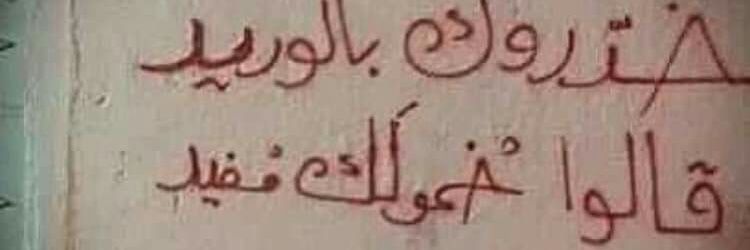 خدّروك بالوريد
قالوا خُمولَك مفيد